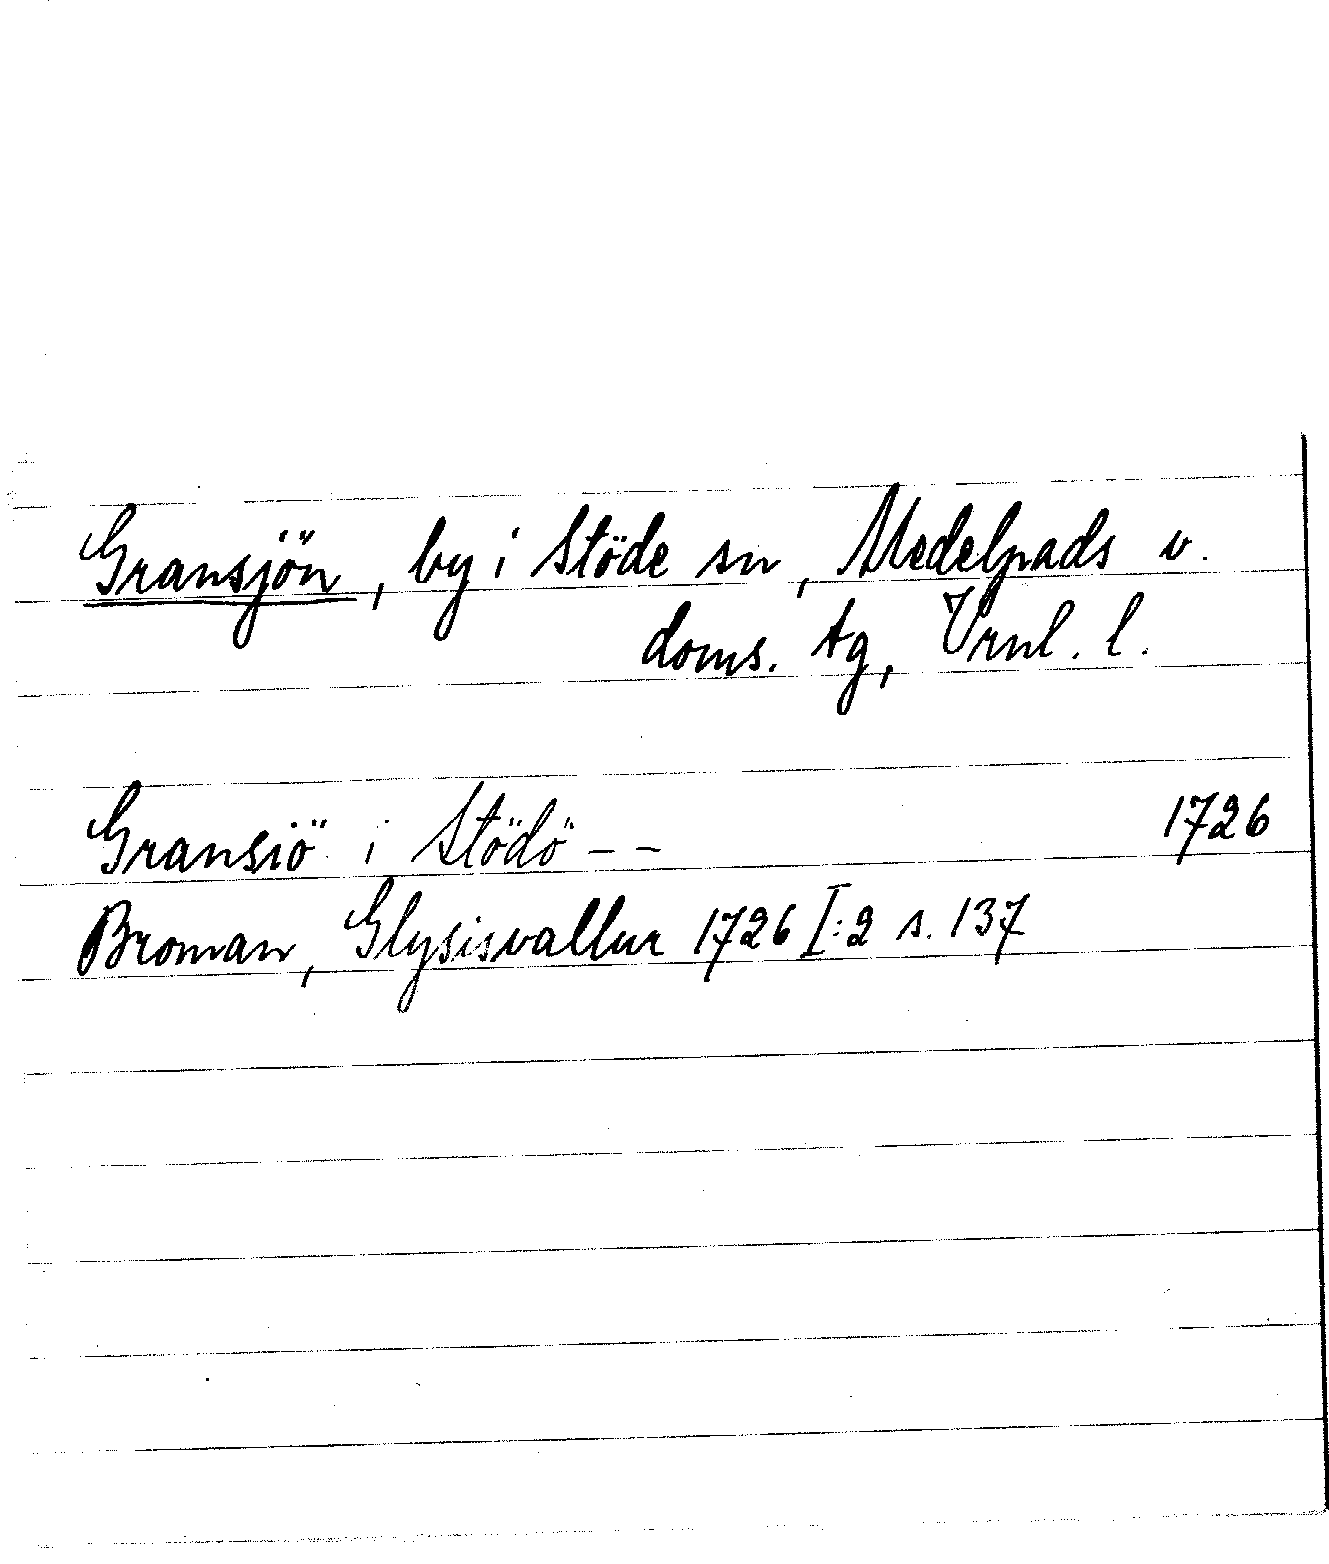 Gransjön, by i Stöde sn, Medelpads v.
doms. tg, Vrnl. l.
Gransiö i Stödö - - 1726
Broman, Glysisvallur 1726 I:2 s. 137